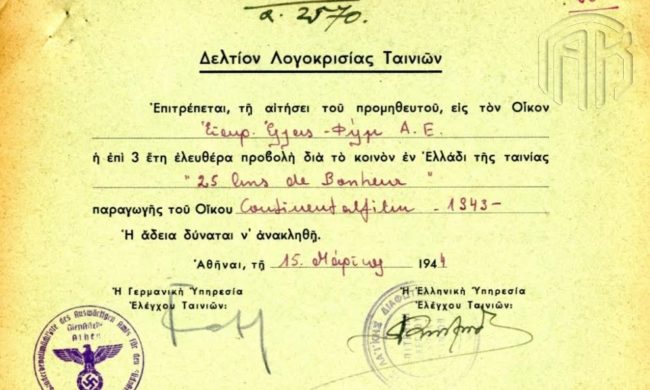 α. 2570.
Δελτίον Λογοκρισίας Ταινιῶν
Ἐπιτρέπεται, τῇ αἰτήσει τοῦ προμηθευτοῦ, εἰς τὸν Οἶκον
Φίλμ Α.Ε.
ἡ ἐπὶ 3 ἔτη ἐλευθέρα προβολὴ διὰ τὸ κοινὸν ἐν Ἑλλάδι τῆς ταινίας
"25 Ans de Bonheur"
παραγωγῆς τοῦ Οἴκου Continentalfilm - 1943 -
Ἡ ἄδεια δύναται ν' ἀνακληθῇ.
Ἀθῆναι, τῇ 15. Μάρτιος 1944
Ἡ Γερμανικὴ Ὑπηρεσία
Ἐλέγχου Ταινιῶν:
Ἡ Ἑλληνικὴ Ὑπηρεσία
Ἐλέγχου Ταινιῶν:
des Auswärtigen Amts für den
Dienststelle
Athen
ΓΑΚ